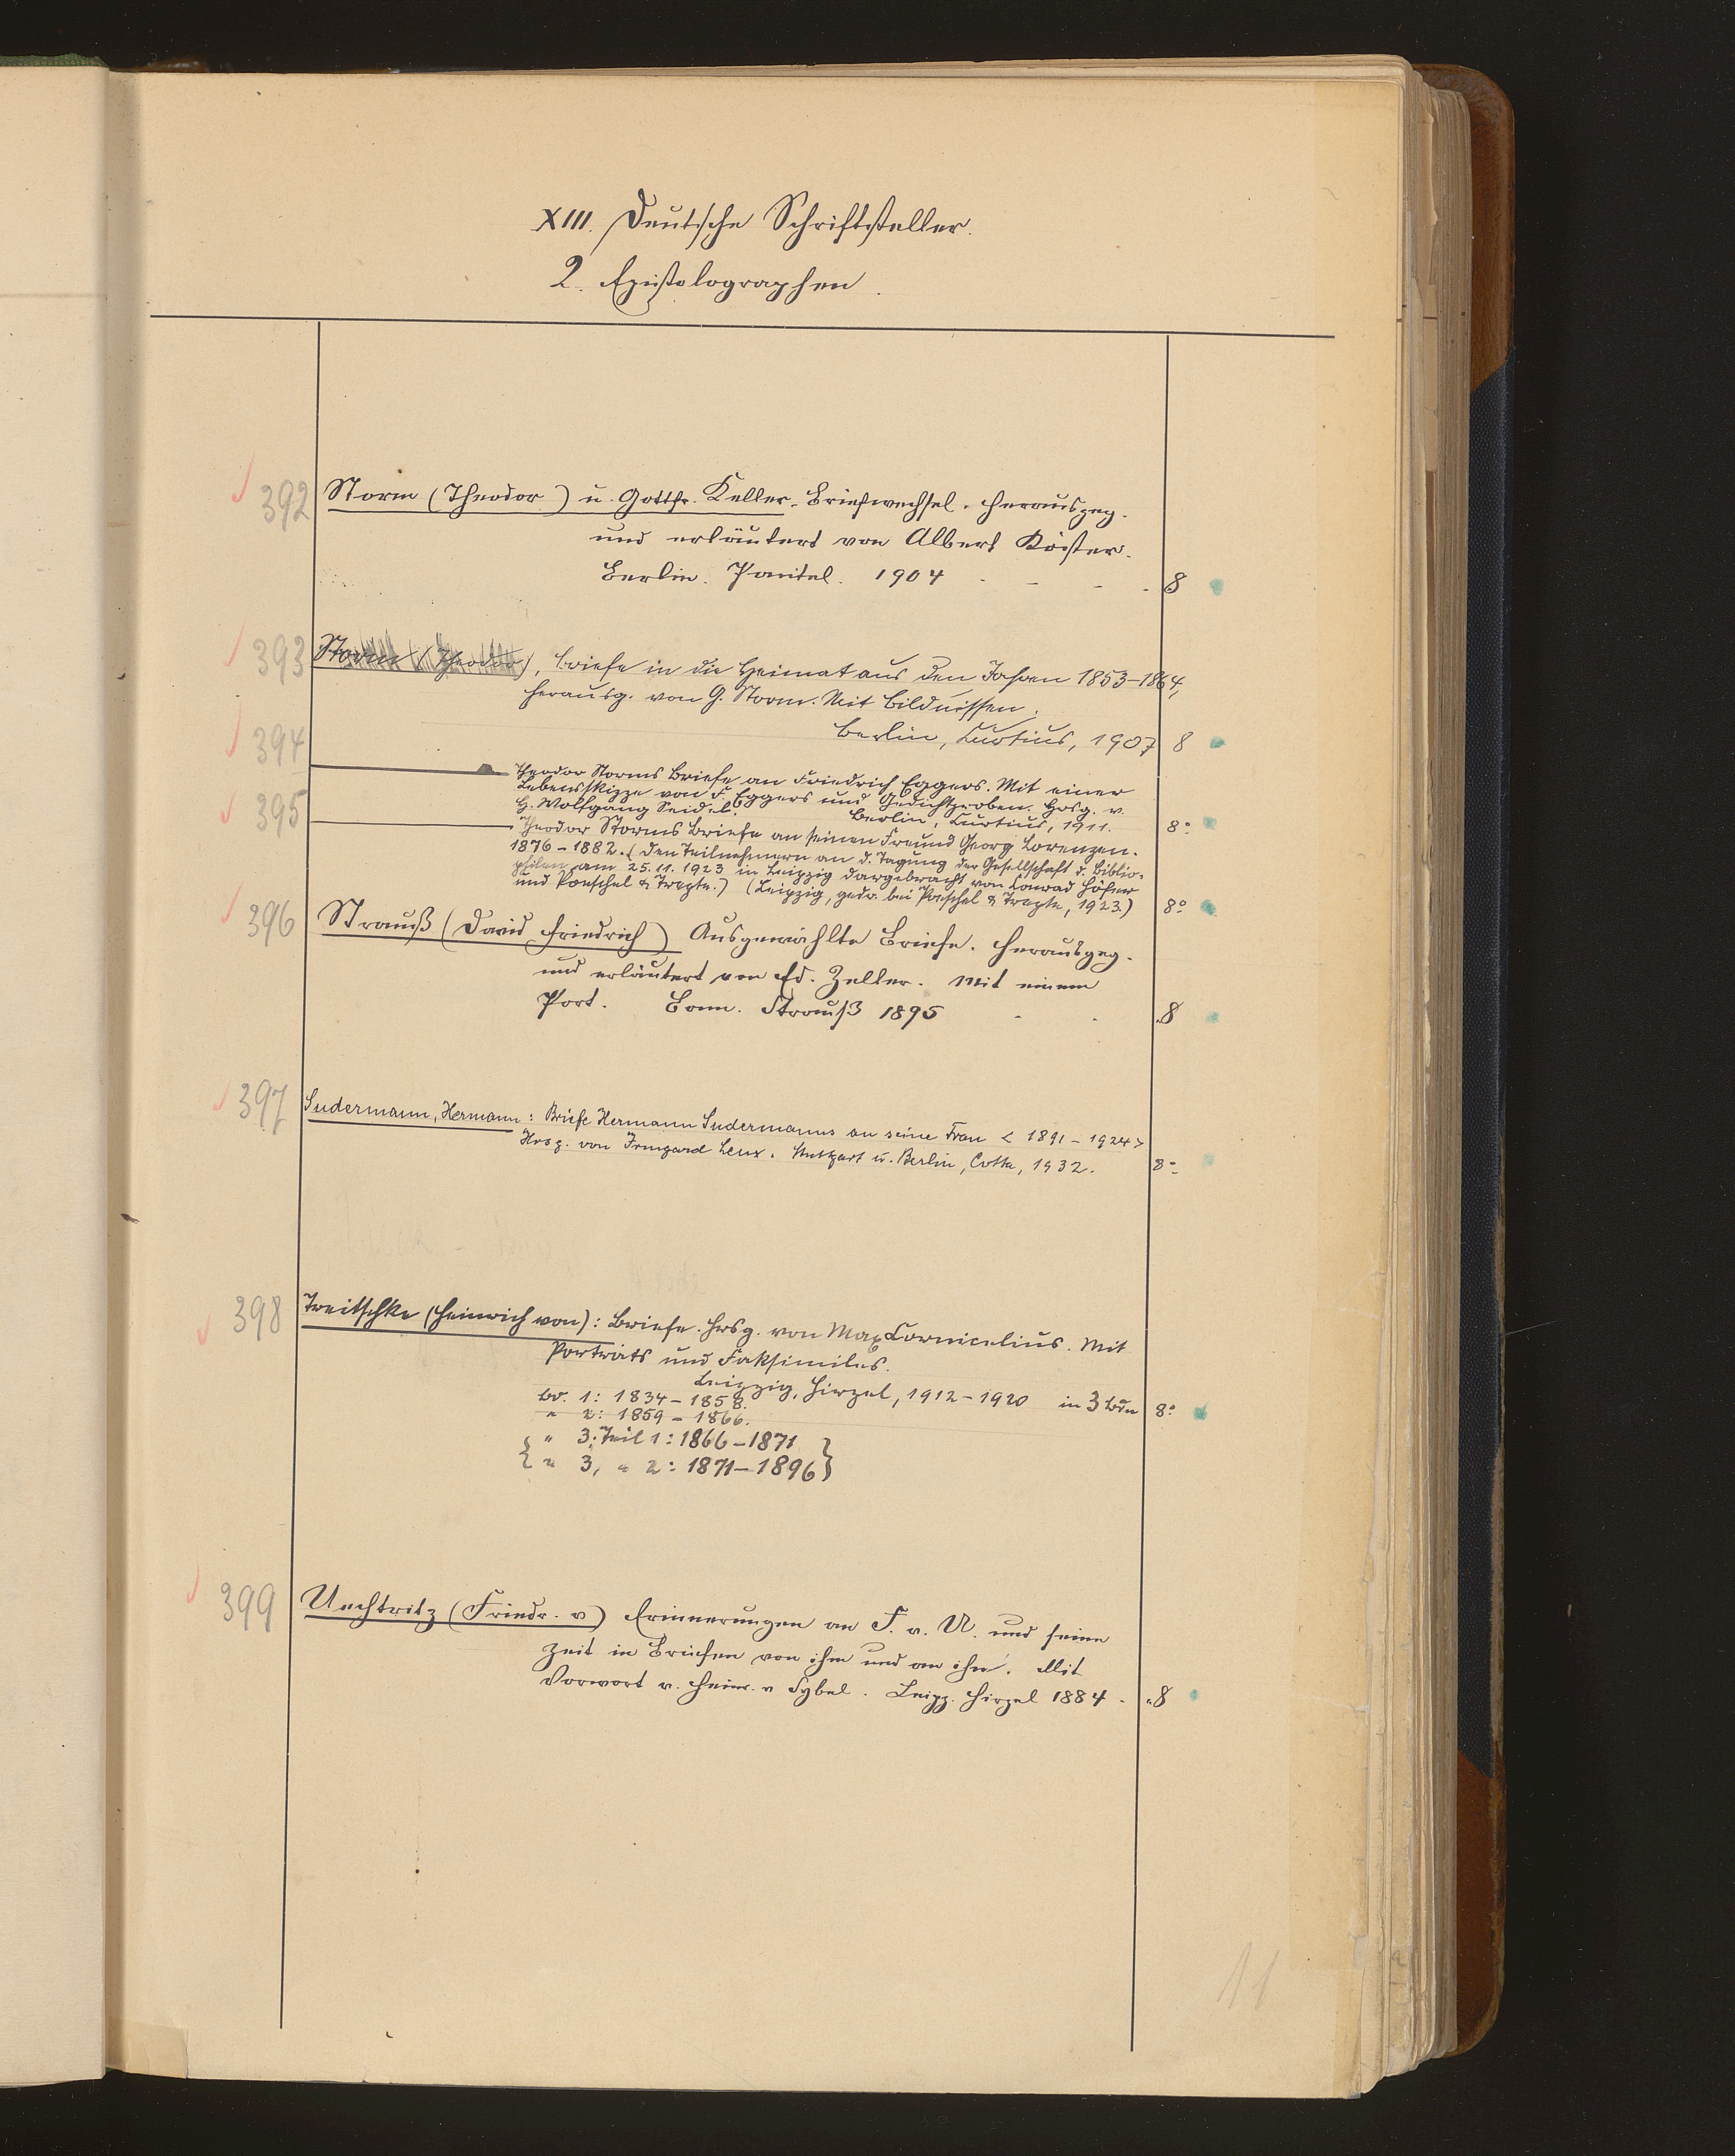 XIII. Deutsche Schriftsteller.
2. Epistolographen.
392 Storm (Theodor) u. Gottfr. Keller. Briefwechsel. Herausgeg.
und erläutert von Albert Köster.
Berlin. Paetel. 1904 - - - - 8
393 Storm (Theodor), Briefe in die Heimat aus den Jahren 1853-1864,
herausg. von G. Storm. Mit Bildnissen.
Berlin, Curtius, 1907 8
394 — Theodor Storms Briefe an Friedrich Eggers. Mit einer
Lebensskizze von F. Eggers und Gedichtproben. Hrsg. v.
H. Wolfgang Seidel. Berlin, Curtius, 1911. 8°
395 — Theodor Storms Briefe an seinen Freund Georg Lorenzen.
1876-1882. (Den Teilnehmern an d. Tagung der Gesellschaft d. Biblio-
philen am 25.11.1923 in Leipzig dargebracht von Conrad Höfer
und Poeschel & Trepte.) (Leipzig, gedr. bei Poeschel & Trepte, 1923.) 8°
396 Strauß (David Friedrich) Ausgewählte Briefe. Herausgeg.
und erläutert von Ed. Zeller. Mit einem
Port. Bonn. Strauß 1895 - - 8
397 Sudermann, Hermann: Briefe Hermann Sudermanns an seine Frau <1891-1924>
Hrsg. von Irmgard Leux. Stuttgart u. Berlin, Cotta, 1932. 8°
398 Treitschke (Heinrich von): Briefe. Hrsg. von Max Cornicelius. Mit
Porträts und Faksimiles.
Leipzig, Hirzel, 1912-1920 in 3 Bdn 8°
Bd. 1: 1834-1858.
" 2: 1859-1866.
{ " 3, Teil 1: 1866-1871 }
{ " 3, " 2: 1871-1896 }
399 Uechtritz (Friedr. v) Erinnerungen an F. v. U. und seine
Zeit in Briefen von ihm und an ihn. Mit
Vorwort v. Heinr. v Sybel. Leipz. Hirzel 1884 - 8
11